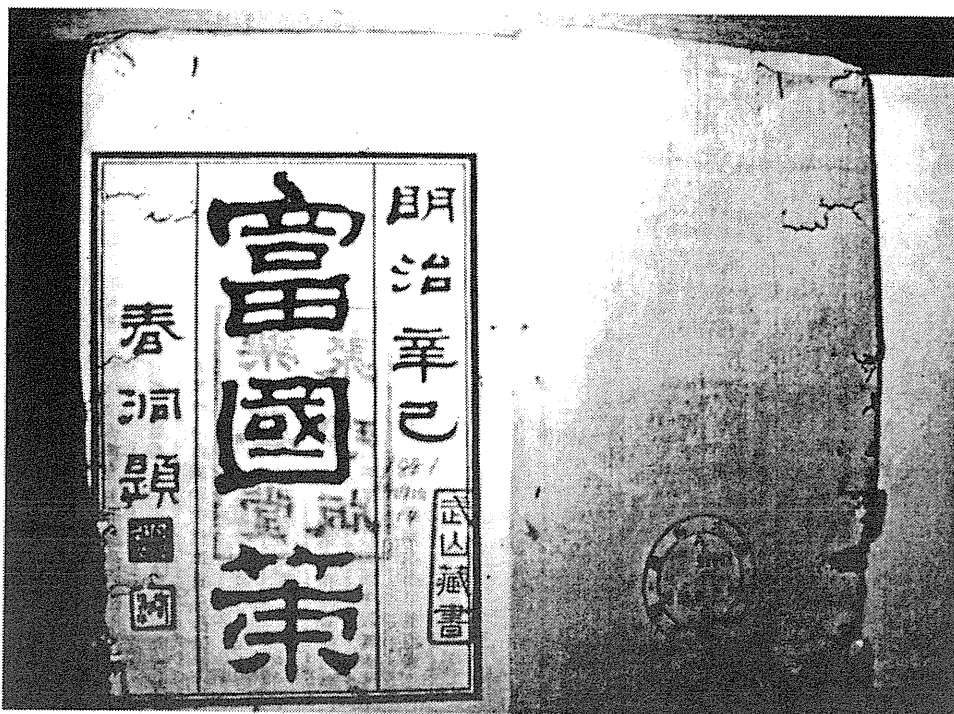 明治辛巳
武山藏書
富國策
春洞題